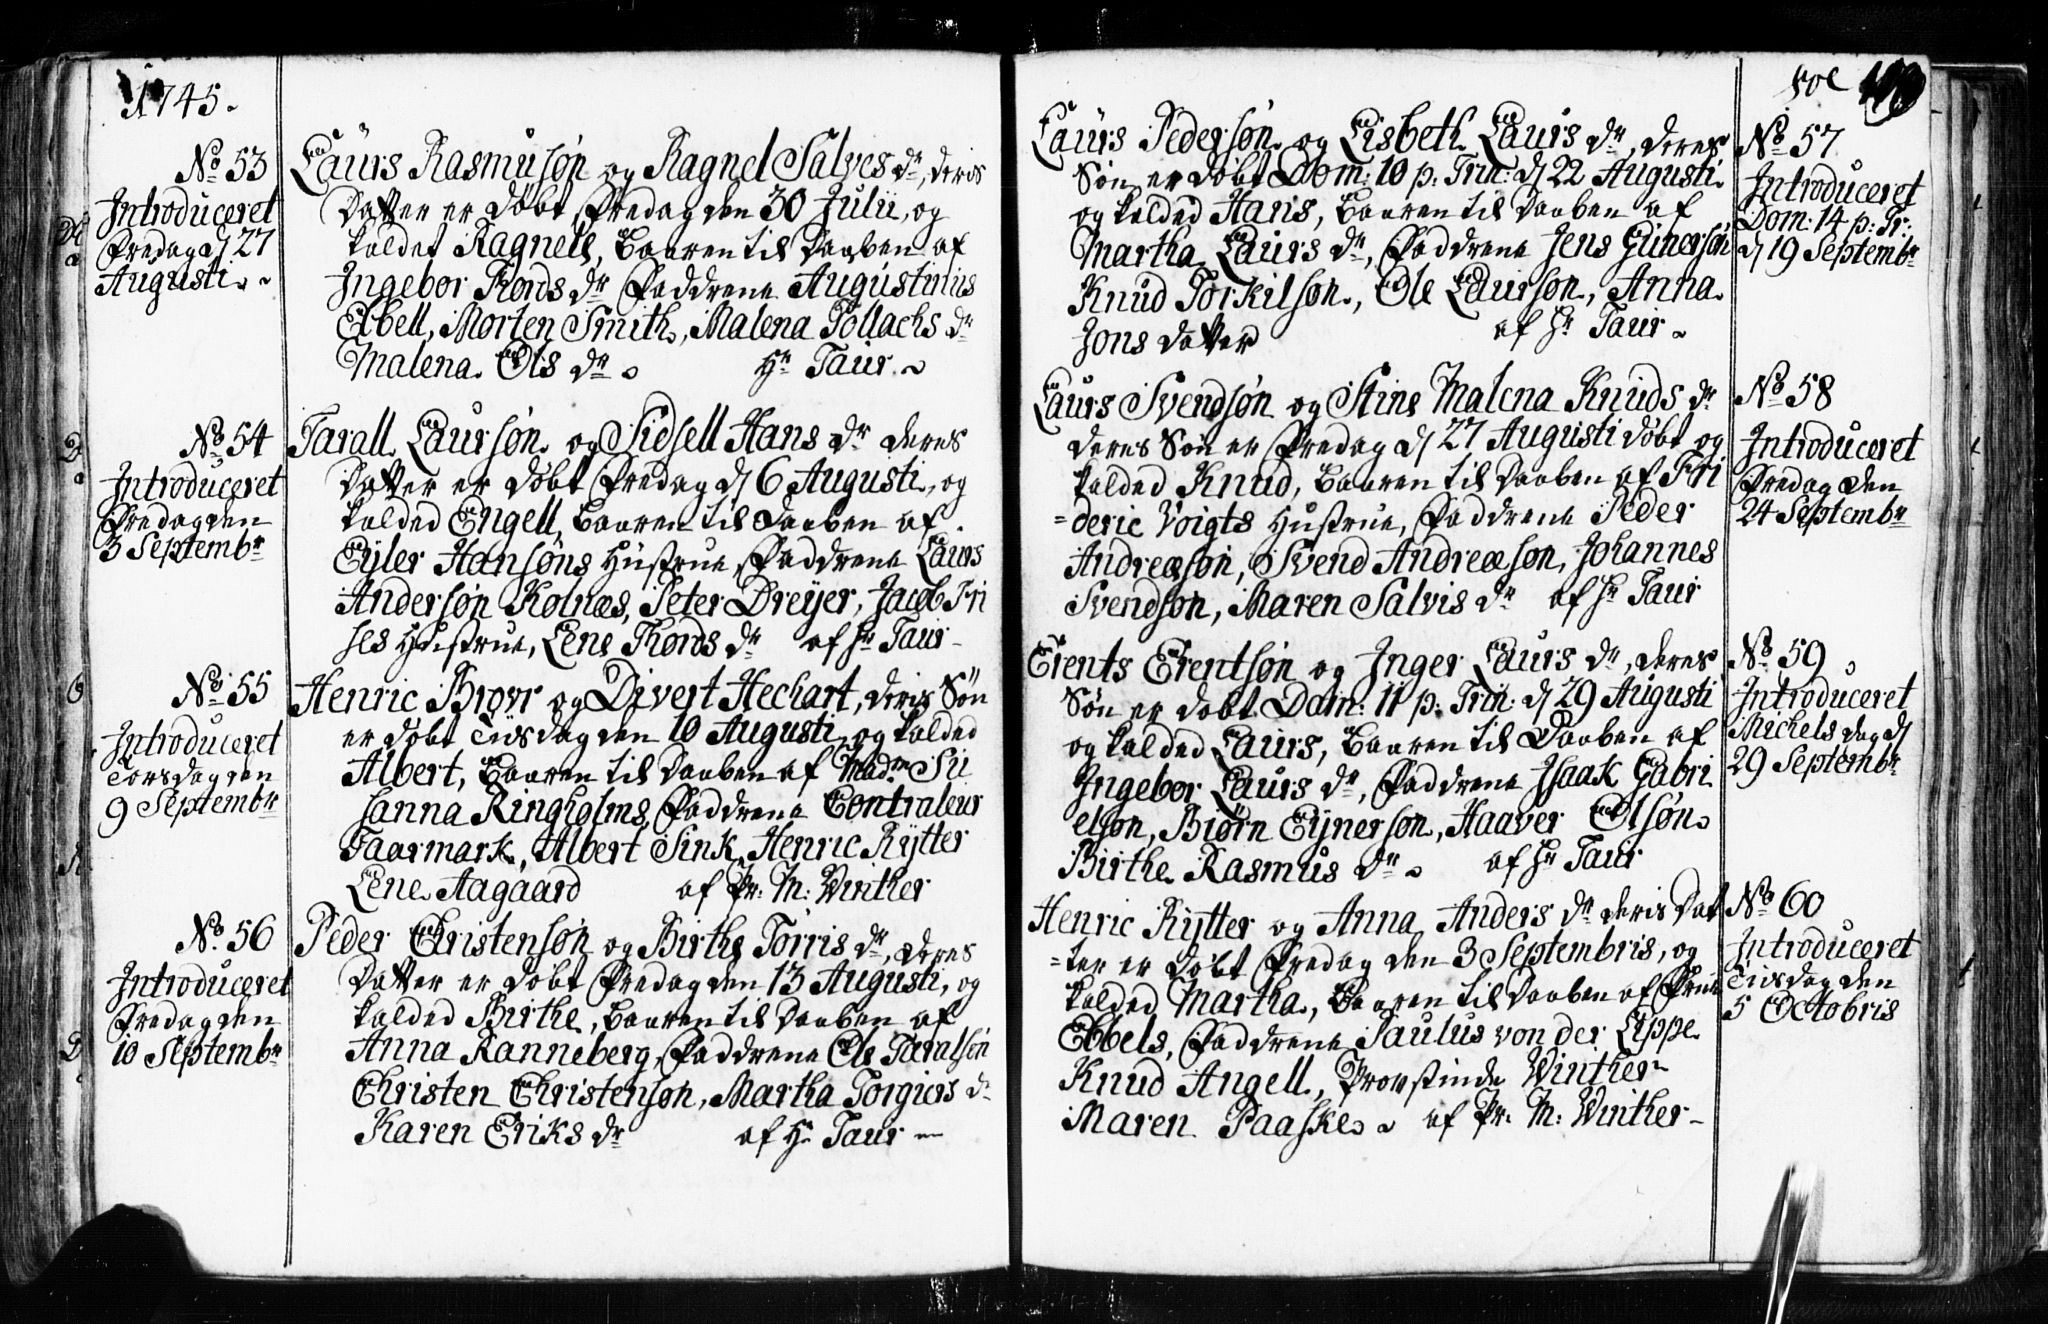 1745.
No 53
Introduceret
Fredag d 27
Augusti
Laurs Rasmusøn og Ragnel Salves dr, deris
Datter er døbt Fredag den 30 Julii, og
kaldet Ragnell, Baaren til Daaben af
Ingebor Tords dr Faddrene Augustinus
Ebell, Morten Smith, Malena Tollachs dr
Malena Ols dr Hr Taur
No 54
Introduceret
Fredag den
3 Septembr
Tarall Laursøn og Sidsell Hans dr deres
Datter er døbt Fredag d 6 Augusti, og
kalded Engell, Baaren til Daaben af
Eyler Hansøns Hustrue, Faddrene Laurs
Andersøn Kolnæs, Peter Dreyer, Jacob Fri
ses Hustrue, Lene Thords dr af Hr Taur
No 55
Introduceret
Torsdag den
9 Septembr
Henric Brovr og Divert Hechart, deris Søn
er døbt Tiisdag den 10 Augusti, og kalded
Albert, Baaren til Daaben af Madm Su
sanna Ringholms, Faddrene Contraleur
Faarmark, Albert Sink, Henric Rytter
Lene Aagaard af Pr: M: Winther
No 56
Introduceret
Fredag den
10 Septembr
Peder Christensøn og Birthe Torris dr, deres
Datter er døbt Fredag den 13 Augusti, og
kalded Birthe, Baaren til Daaben af
Anna Ranneberg, Faddrene Ole Taralsøn
Christen Christensøn, Martha Torgiers dr
Karen Eriks dr af Hr Taur
Laurs Pedersøn og Lisbeth Laurs dr, deres
Søn er døbt Dom: 10 p: Trin: d 22 Augusti
og kalded Hans, Baaren til Daaben af
Martha Laurs dr, Faddrene Jens Gunersøn
Knud Torkilsøn, Ole Laursøn, Anna
Jons datter af Hr Taur
No 57
Introduceret
Dom: 14 p: Tr:
d 19 Septembr
Laurs Svendsøn og Stine Malena Knuds dr
deres Søn er Fredag d 27 Augusti døbt og
kalded Knud, Baaren til Daaben af Fri
=deric Voigts Hustrue, Faddrene Peder
Andreæsøn, Svend Andreæsøn, Johannes
Svendsøn, Maren Salvis dr af Hr Taur
No 58
Introduceret
Fredag den
24 Septembr
Erents Erentsøn og Inger Laurs dr, deres
Søn er døbt Dom: 11 p: Trin: d 29 Augusti
og kalded Laurs, Baaren til Daaben af
Ingebor Laurs dr, Faddrene Isaak Gabri
elsøn, Biørn Eynersøn, Haaver Olsøn
Birthe Rasmus dr af Hr Taur
No 59
Introduceret
Michels dag d
29 Septembr
Henric Rytter og Anna Anders dr deris Dat
=ter er døbt Fredag den 3 Septembris, og
kalded Martha, Baaren til Daaben af Frue
Ebbels, Faddrene Paulus von der Lippe
Knud Angell, Provstinde Winther
Maren Paaske af Pr: M: Winther
No 60
Introduceret
Tiisdag den
5 Octobris